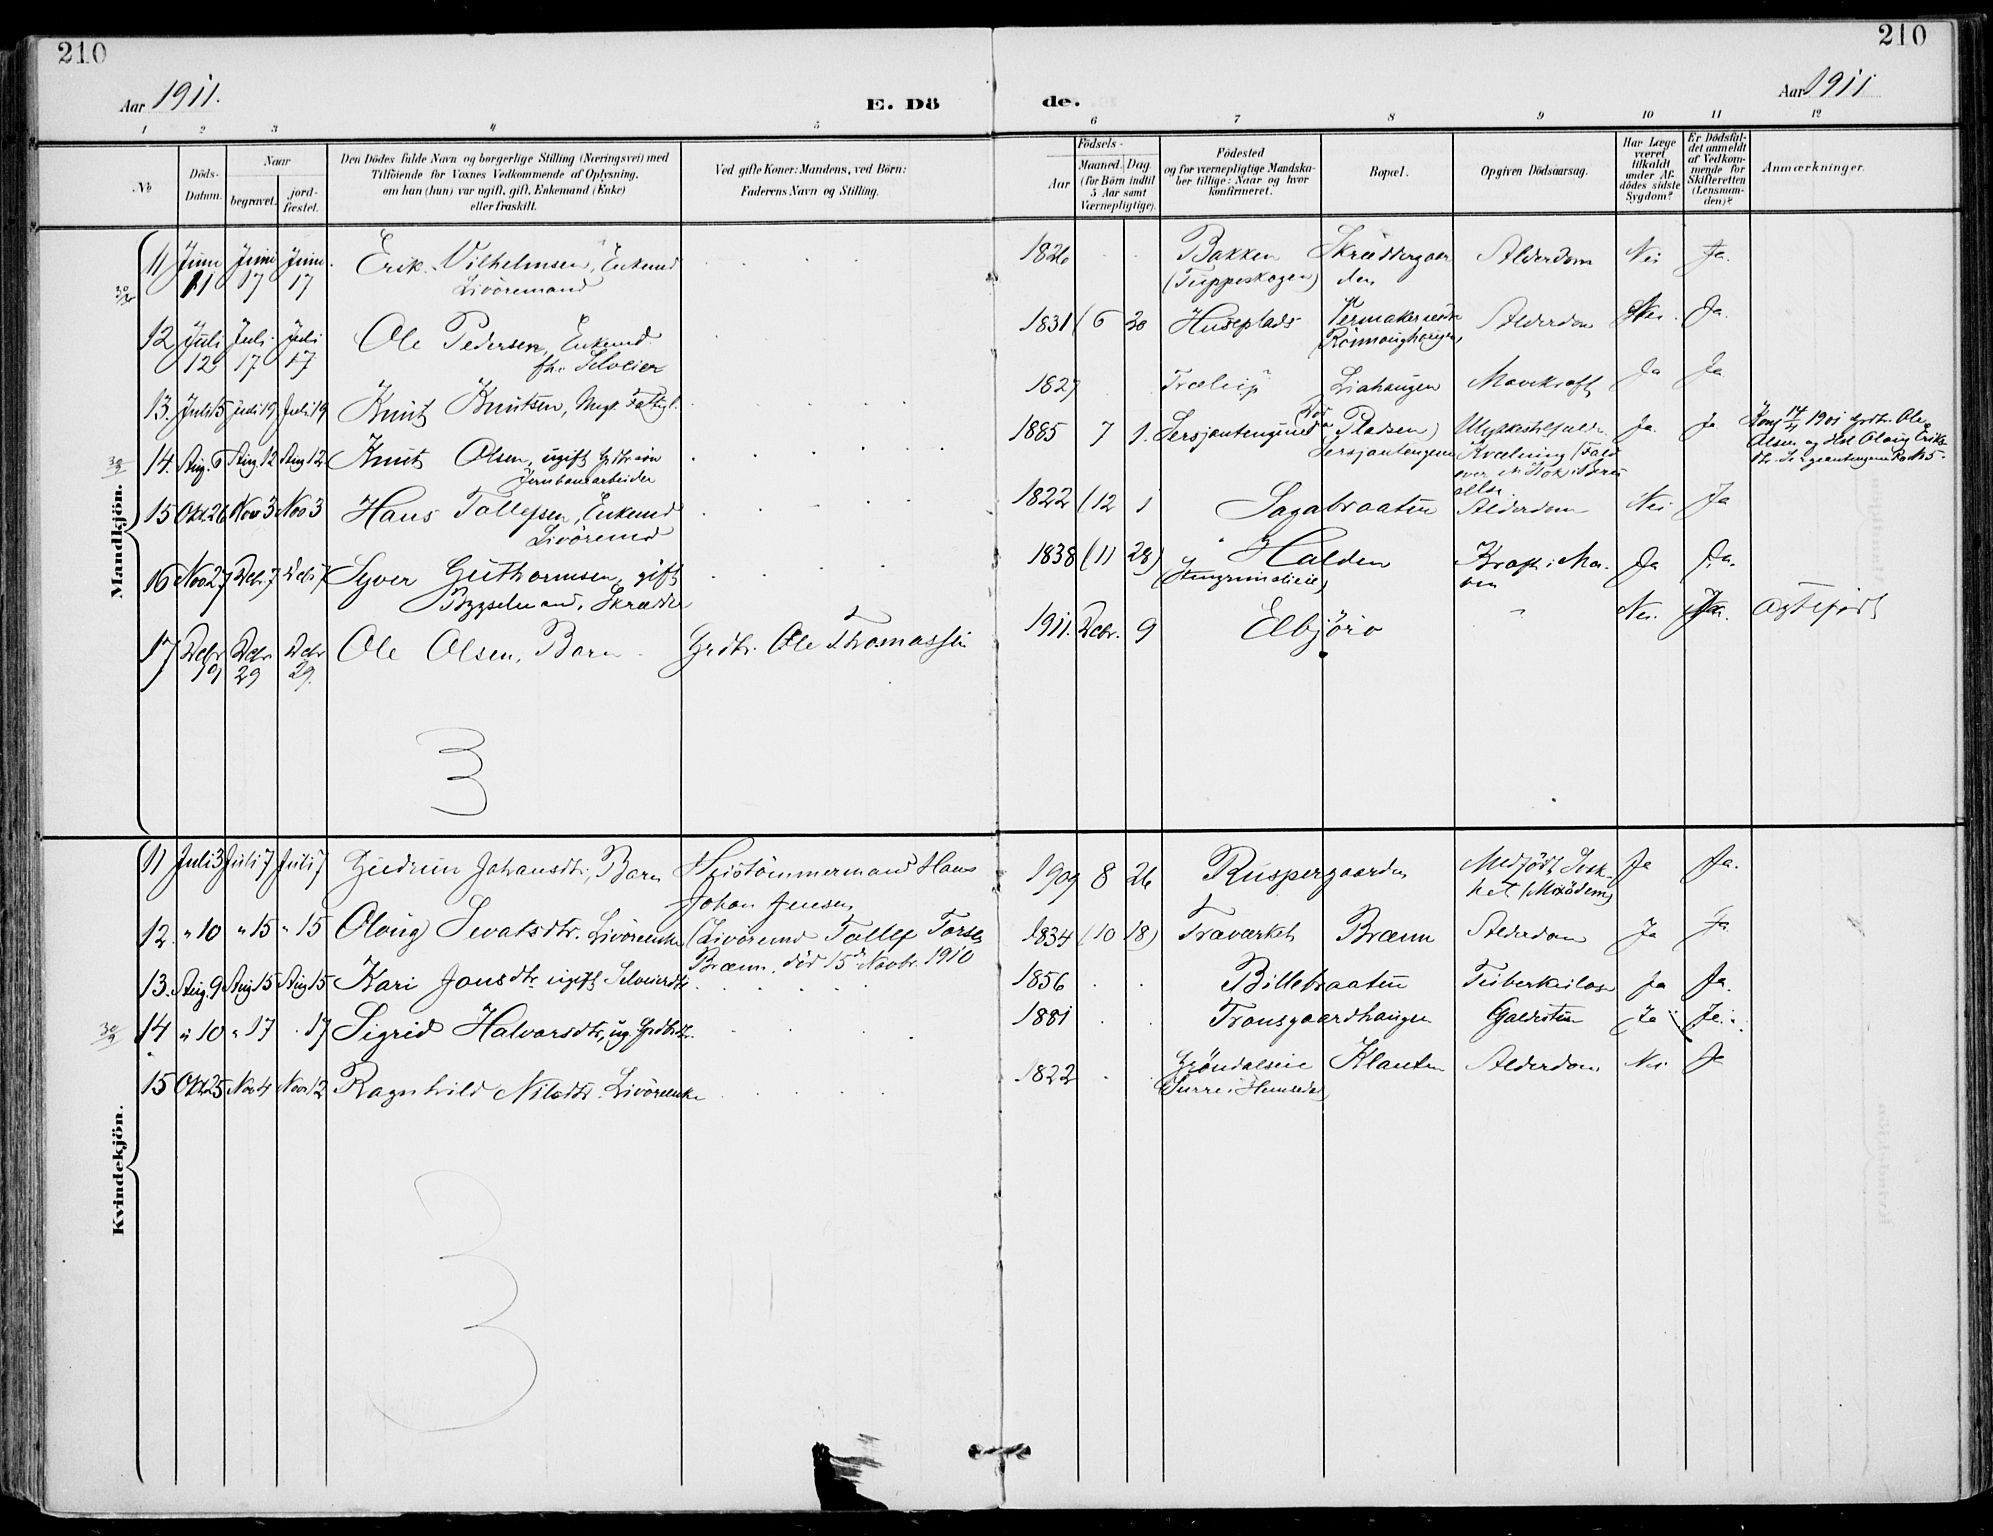 210
210
Aar 1911.
E. Dö
de.
Aar 1911
1 2 3 4 5 6 7 8 9 10 11 12
No
Döds-
Datum.
Naar
begravet.
jord-
fæstet.
Den Dödes fulde Navn og borgerlige Stilling (Næringsvei) med
Tilföiende for Voxnes Vedkommende af Oplysning.
om han (hun) var ugift, gift, Enkemand (Enke)
eller fraskilt.
Ved gifte Koner: Mandens, ved Börn:
Faderens Navn og Stilling.
Födsels-
Aar
Maaned.
Dag.
(for Börn indtil
5 Aar samt
Værnepligtige).
Födested
og for værnepligtige Mandska-
ber tillige: Naar og hvor
konfirmeret.
Bopæl.
Opgiven Dödsaarsag.
Har Læge
været
tilkaldt
under Af-
dödes sidste
Sygdom?
Er Dödsfal-
det anmeldt
af Vedkom-
mende for
Skifteretten
(Lensman-
den)?
Anmærkninger.
Mandkjön.
11 Juni 11 Juni 17 Juni 17 Erik Vilhelmsen, Enkemd
Livöremand
1826 Bakken Skræddergaar
den Alderdom Nei Ja.
12 Juli 12 Juli 17 Juli 17 Ole Pedersen, Enkemd
fh. Selveier
1831 (6 20 Huseplads Alderdom Nei. Ja.
13. Juli 15 Juli 19 Juli 19 Knut Knutsen, Ugt. Fattigl.
1827 Liahaugen Mavekræft Ja Ja
14. Aug. 6 Aug 12 Aug 12 Knut Olsen, ugift Grdbr. sön
Jernbanearbeider
1885 7 1. Sersjantengene Pladsen
Sersjantengene Ulykkestilfælde
Kvælning (Fald
Ja. Ja Konf 14 1901 Grdbr. Ole
Olsen og Olaug Eriks
15 Okt. 26 Nov 3 Nov 3 Hans Tollefsen, Enkemd
Livöremd
1822 (12 1 Sagabraaten Alderdom Nei Ja
16 Nov 27 Debr. 7 Debr 7 Syver Guthormsen, gift
Bygselmand, Skrædder
1838 (11 28) Halden Kræft i Ma-
ven Ja Ja.
17 Debr 19 Debr 29 Debr 29. Ole Olsen, Barn. Grdbr. Ole Thomassen
1911. Debr. 9 Elbjöro " Nei. Ja. Agtefødt
3
Kvindekjön.
11 Juli 3 Juli 7 Juli 7 Gudrun Johansdtr., Barn Heistömmermand Hans
Johan Jensen
1909 8 26 Ruspergaarden Medfödt Svak-
het (Mixödem) Ja Ja.
12. " 10 " 15 " 15 Olaug Sevatsdtr. Livöreenke (Livöremd Tollef Torsen
Bræen, död 15de Novbr. 1910
1834 (10 18) Traværket Bræen Alderdom Ja Ja
13. Aug. 9 Aug 15 Aug 15 Kari Jonsdtr. ugift Selveierdtr
1856 Billebraaten Tuberkulose Ja Ja.
14 " 10 " 17 . 17 Sigrid Halvorsdtr, ug. Grdbrdtr.
1881 Transgaardhaugen Galdesten Ja Ja.
15 Okt. 25 Nov 4 Nov 12 Ragnhild Nilsdtr. Livöreenke
1822 Gröndalseie Klanten Alderdom Nei Ja
3